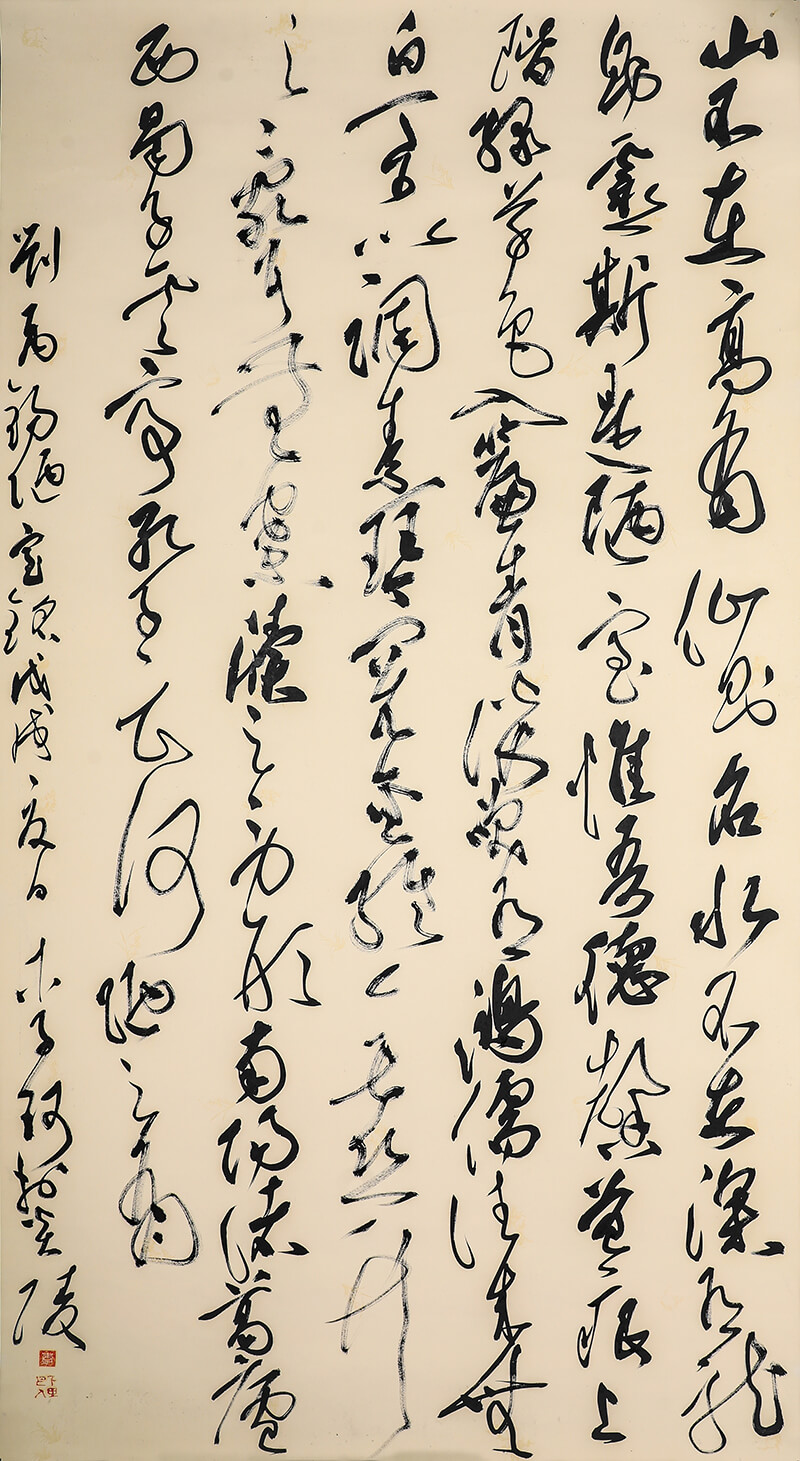 山不在高有仙則名水不在深有龍
則靈斯是陋室惟吾德馨苔痕上
階綠草色入簾青談笑有鴻儒往來無
白丁可以調素琴閱金經無絲竹
之亂耳無案牘之勞形南陽諸葛廬
西蜀子雲亭孔子云何陋之有
劉禹錫陋室銘戊戌夏日木子珂於炎陵